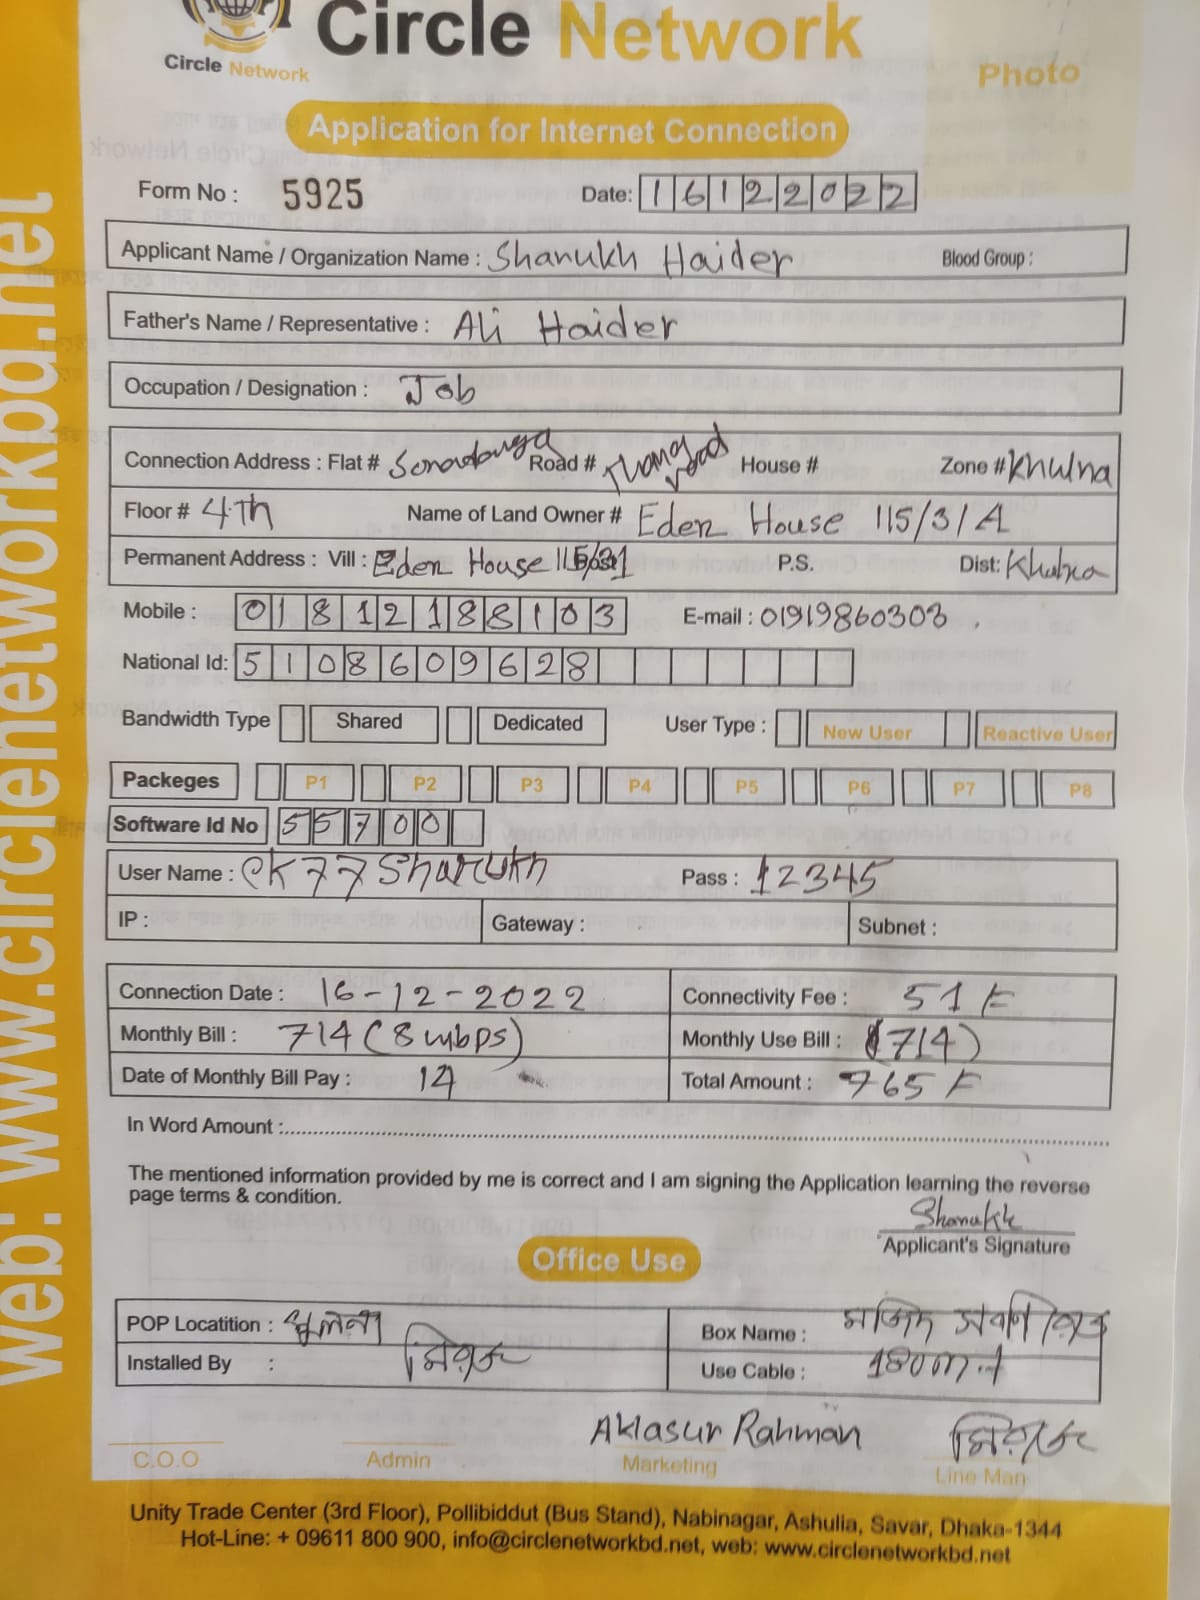 Circle Network
Circle Network
Photo
Application for Internet Connection
Form No : 5925 Date: 16122022
Applicant Name / Organization Name : Sharukh Haider Blood Group :
Father's Name / Representative : Ali Haider
Occupation / Designation : Job
Connection Address : Flat # Sonadanga Road # road House # Zone # Khulna
Floor # 4Th Name of Land Owner # Eden House 115/3/A
Permanent Address : Vill : Eden House Post P.S. Dist: Khulna
Mobile : 01812188103 E-mail : 01919860303
National Id: 5108609628
Bandwidth Type Shared Dedicated User Type : New User Reactive User
Packeges P1 P2 P3 P4 P5 P6 P7 P8
Software Id No 55700
User Name : CK77Sharukh Pass : 12345
IP : Gateway : Subnet :
Connection Date : 16-12-2022 Connectivity Fee : 51
Monthly Bill : 714 (8 mbps) Monthly Use Bill : (714)
Date of Monthly Bill Pay : 14 Total Amount : 765
In Word Amount :
The mentioned information provided by me is correct and I am signing the Application learning the reverse
page terms & condition.
Sharukh
Applicant's Signature
Office Use
POP Locatition : খুলনা Box Name : মসজিদ
Installed By : মিরাজ Use Cable : 180m
Aklasur Rahman মিরাজ
C.O.O Admin Marketing Line Man
Unity Trade Center (3rd Floor), Pollibiddut (Bus Stand), Nabinagar, Ashulia, Savar, Dhaka-1344
Hot-Line: + 09611 800 900, info@circlenetworkbd.net, web: www.circlenetworkbd.net
web: www.circlenetworkbd.net